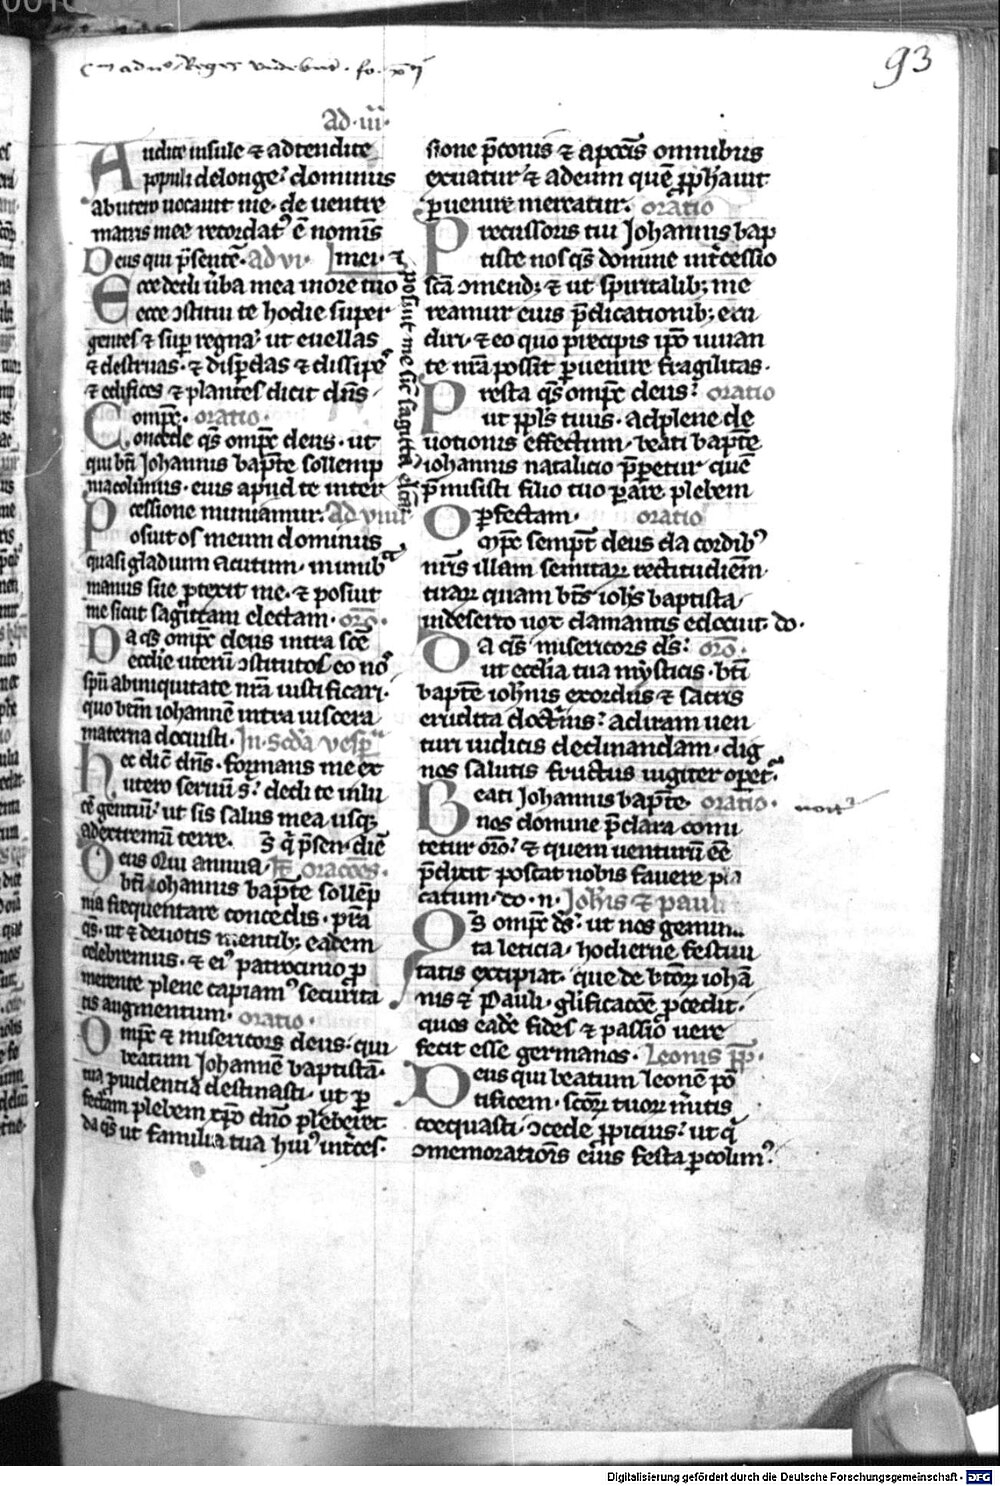 93
Ad·iii·
Audite insule ⁊ adtendite
populi delonge? dominus
abutero uocauit me· de uentre
matris mee recordatꝰ ē nominis
Deus qui p̄sentē· ad vi· mei· ⁊
posuit me sic̄ sagittā elc̄ā
Ecce dedi ūba mea in ore tuo
ecce ɔstitui te hodie super
gentes ⁊ suꝑ regna? ut euellas
⁊ destruas· ⁊ disꝑdas ⁊ dissipes
⁊ edifices ⁊ plantes dicit dn̄s
Comp̄c· oratio·
Concede qs̄ omp̄c deus· ut
qui bt̄i Johannis bapt̄e sollemp
nia colimus· eius apud te inter
cessione muniamur· Ad viiii
Posuit os meum dominus
quasi gladium acutum· in umbra
manus sue ꝓtexit me· ⁊ posuit
me sicut sagittam electam· or̄o·
Da qs̄ omp̄c deus intra sc̄e
ecclie uterū ɔstitutos eo nos
spū abiniquitate nr̄a iustificari·
quo btm̄ iohannē intra uiscera
materna docuisti· In·scd̄a vesp̄
Hec dic̄ dn̄s· formans me ex
utero seruū s? dedi te in lu
cē gentiū? ut sis salus mea usqꝫ
ad extremū terre· S q̄ p̄sen· diē
Deus Qui annua· Itē oracōes·
bt̄i iohannis bapt̄e sollēp
nia frequentare concedis· p̄sta
qs̄· ut ⁊ deuotis mentibꝫ eadem
celebremus· ⁊ eiꝰ patrocinio ꝓ
merente plene capiamꝰ securita
tis augmentum· oratio·
Omp̄c ⁊ misericors deus· qui
beatum Johannē baptistā·
tua ꝓuidentia destinasti· ut ꝑ
fectam plebem xp̄o dn̄o p̄beret·
da qs̄ ut familia tua huiꝰ int̄ces·
sione p̄conis ⁊ a pcc̄is omnibus
exuatur ⁊ ad eum quē ꝓph̄auit
ꝑuenire mereatur· oratio
Precussoris tui Johannis bap
tiste nos qs̄ domine int̄cessio
sc̄ā ɔmendꝫ ⁊ ut spiritalibꝫ me
reamur eius p̄dicationibꝫ eru
diri· ⁊ eo quo precipis ip̄o iuuan
te nr̄a possit ꝑuenire fragilitas·
Presta qs̄ omp̄c deus? oratio
ut ppl̄s tuus· ad plene de
uotionis effectum· beati bapt̄e
iohannis natalicio p̄ꝑetur quē
p̄misisti filio tuo parare plebem
ꝑfectam· oratio
Omp̄c sempt̄ deus da cordibꝰ
nr̄is illam semitarꝝ rectitudinem
tuarꝝ quam bt̄s ioh̄s baptista
in deserto uox clamantis edocuit· do·
Da qs̄ misericors ds̄? or̄o·
ut eccl̄ia tua mysticis· bt̄i
bapt̄e ioh̄nis exordiis ⁊ sacris
erudita doctr̄nis? ad iram uen
turi iudicis declinandam· dig
nos salutis fructus iugiter opet̄·
Beati Johannis bapt̄e oratio·
nos domine p̄clara comi
tetur or̄o? ⁊ quem uenturū eē
p̄dixit poscat nobis fauere pla
catum· do· n· Joh̄is ⁊ pauli
Qs̄ omp̄c ds̄? ut nos gemin
ta leticia· hodierne festiui
tatis excipiat· que de bt̄orꝝ iohā
nis ⁊ Pauli· gl̄ificacōe ꝓcedit·
quos eadē fides ⁊ passio uere
fecit esse germanos· Leonis pp̄·
Deus qui beatum leonē pō
tificem· sc̄orꝝ tuorꝝ m̄itis
coequasti· ɔcede ꝓpicius? ut q̄
ɔmemorationis eius festa ꝑcolimꝰ?
Digitalisierung gefördert durch die Deutsche Forschungsgemeinschaft · DFG